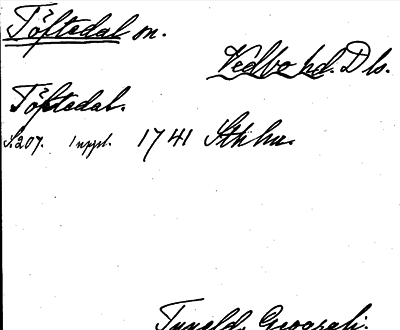 Töftedal sn.
Vedbo hd. Dls.
Töftedal.
S.207. 1 uppl. 1741 Sthlm.
Tuneld, Geografi.